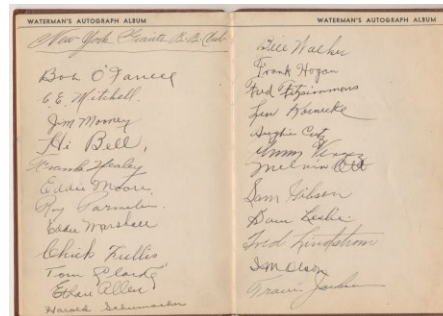 WATERMAN'S AUTOGRAPH ALBUM
New York Giants B.B. Club
Bob O'Farrell
C.E. Mitchell.
Jim Mooney
Hi Bell.
Frank Healey
Eddie Moore.
Roy Parmelee.
Eddie Marshall
Chick Fullis
Tom Clarke
Ethan Allen
Harold Schumacher
WATERMAN'S AUTOGRAPH ALBUM
Bill Walker
Frank Hogan
Fred Fitzsimmons
Len Koenecke
Hughie Critz
Melvin Ott
Sam Gibson
Sam Leslie
Fred Lindstrom
Travis Jackson